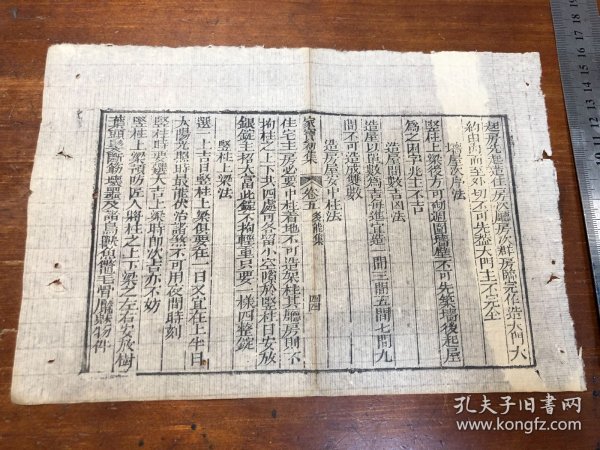 起房先起造住房次廳房次群房餙完在造大門大
約由內而至外切不可先造大門主不完全
墻屋次序法
竪柱上梁後方可砌週圍墻壁不可先築墻後起屋
為之困字兆主不吉
造屋間數吉凶法
造屋以單數為吉每進宜造一間三間五間七間九
間不可造成雙數
造房屋安中柱法
家寶初集
卷五
多能集
住宅主房必要中柱着地不可造架柱其廳房則不
拘柱之上下共四處可各留小空隙於竪柱日安放
銀錠主招大富此錠不拘輕重只要一樣四整錠
竪柱上梁法
選一上吉日竪柱上梁俱要在一日又宜在上半日
太陽光照時最能伏治諸煞不可用夜間時刻
竪柱時要選大吉上梁時即次吉亦不妨
竪柱上梁預防匠人將柱之上下梁之左右安放樹
孔夫子旧书网
www.kongfz.com